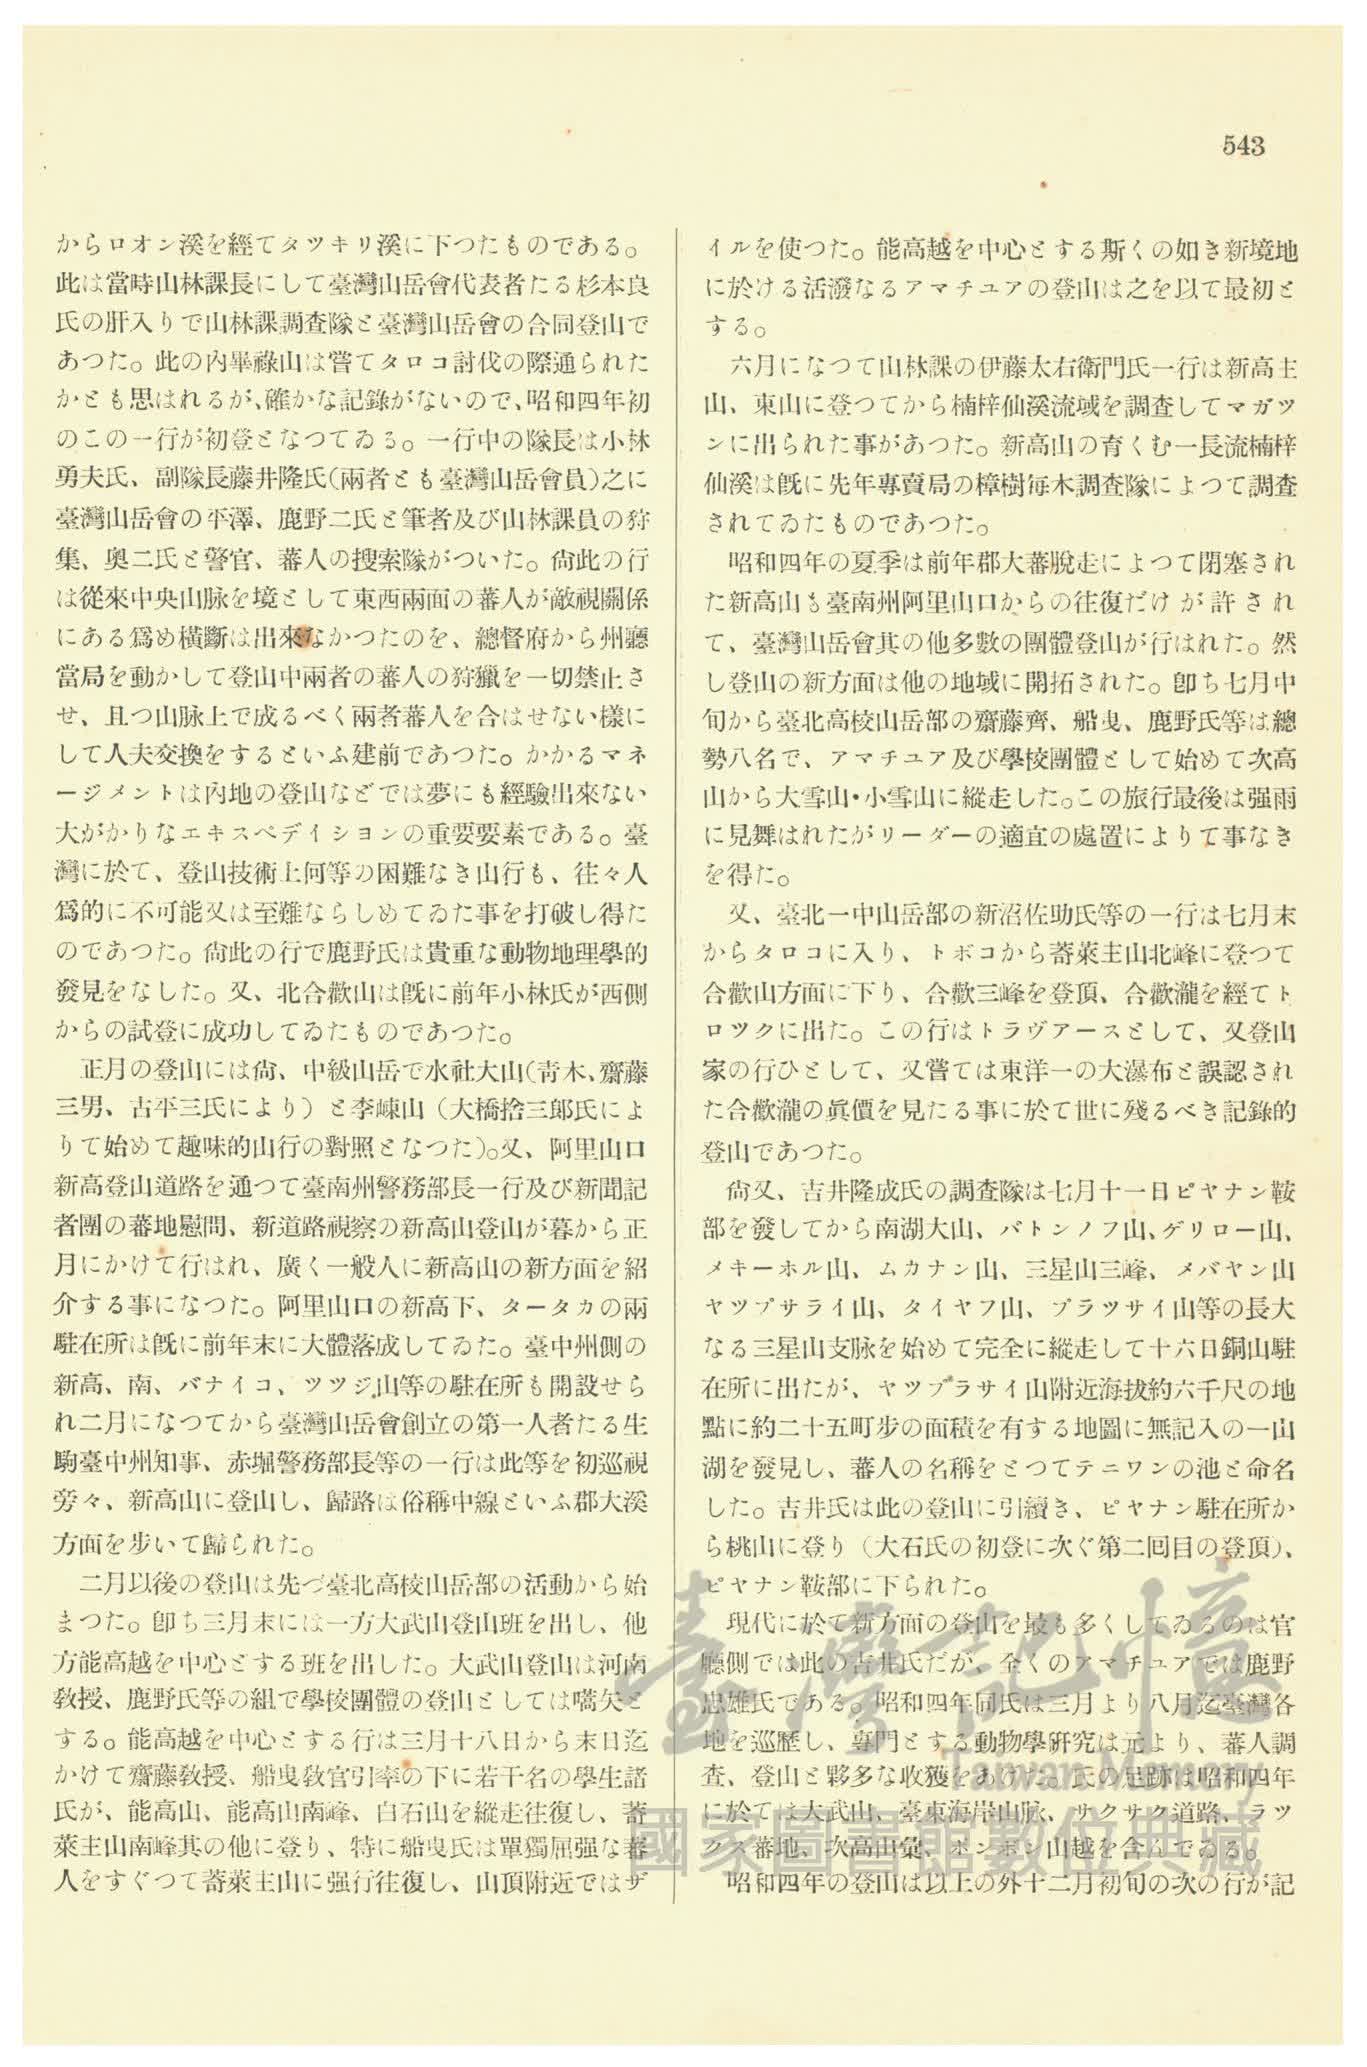 543
からロオン溪を經てタツキリ溪に下つたものである。
此は當時山林課長にして臺灣山岳會代表者たる杉本良
氏の肝入りで山林課調査隊と臺灣山岳會の合同登山で
あつた。此の內畢祿山は嘗てタロコ討伐の際通られた
かとも思はれるが、確かな記錄がないので、昭和四年初
のこの一行が初登となつてゐる。一行中の隊長は小林
勇夫氏、副隊長藤井隆氏(兩者とも臺灣山岳會員)之に
臺灣山岳會の平澤、鹿野二氏と筆者及び山林課員の狩
集、奧二氏と警官、蕃人の搜索隊がついた。尙此の行
は從來中央山脉を境として東西兩面の蕃人が敵視關係
にある爲め橫斷は出來なかつたのを、總督府から州廳
當局を動かして登山中兩者の蕃人の狩獵を一切禁止さ
せ、且つ山脉上で成るべく兩者蕃人を合はせない樣に
して人夫交換をするといふ建前であつた。かかるマネ
ージメントは內地の登山などでは夢にも經驗出來ない
大がかりなエキスペデイシヨンの重要要素である。臺
灣に於て、登山技術上何等の困難なき山行も、往々人
爲的に不可能又は至難ならしめてゐた事を打破し得た
のであつた。尙此の行で鹿野氏は貴重な動物地理學的
發見をなした。又、北合歡山は旣に前年小林氏が西側
からの試登に成功してゐたものであつた。
正月の登山には尙、中級山岳で水社大山(靑木、齋藤
三男、古平三氏により)と李崠山(大橋捨三郞氏によ
りて始めて趣味的山行の對照となつた)。又、阿里山口
新高登山道路を通つて臺南州警務部長一行及び新聞記
者團の蕃地慰問、新道路視察の新高山登山が暮から正
月にかけて行はれ、廣く一般人に新高山の新方面を紹
介する事になつた。阿里山口の新高下、タータカの兩
駐在所は旣に前年末に大體落成してゐた。臺中州側の
新高、南、バナイコ、ツツジ山等の駐在所も開設せら
れ二月になつてから臺灣山岳會創立の第一人者たる生
駒臺中州知事、赤堀警務部長等の一行は此等を初巡視
旁々、新高山に登山し、歸路は俗稱中線といふ郡大溪
方面を步いて歸られた。
二月以後の登山は先づ臺北高校山岳部の活動から始
まつた。卽ち三月末には一方大武山登山班を出し、他
方能高越を中心とする班を出した。大武山登山は河南
敎授、鹿野氏等の組で學校團體の登山としては嚆矢と
する。能高越を中心とする行は三月十八日から末日迄
かけて齋藤敎授、船曳敎官引率の下に若干名の學生諸
氏が、能高山、能高山南峰、白石山を縱走往復し、莟
萊主山南峰其の他に登り、特に船曳氏は單獨屈强な蕃
人をすぐつて莟萊主山に强行往復し、山頂附近ではザ
イルを使つた。能高越を中心とする斯くの如き新境地
に於ける活潑なるアマチユアの登山は之を以て最初と
する。
六月になつて山林課の伊藤太右衛門氏一行は新高主
山、東山に登つてから楠梓仙溪流域を調査してマガツ
ンに出られた事があつた。新高山の育くむ一長流楠梓
仙溪は旣に先年專賣局の樟樹每木調査隊によつて調査
されてゐたものであつた。
昭和四年の夏季は前年郡大蕃脫走によつて閉塞され
た新高山も臺南州阿里山口からの往復だけが許され
て、臺灣山岳會其の他多數の團體登山が行はれた。然
し登山の新方面は他の地域に開拓された。卽ち七月中
旬から臺北高校山岳部の齋藤齊、船曳、鹿野氏等は總
勢八名で、アマチユア及び學校團體として始めて次高
山から大雪山・小雪山に縱走した。この旅行最後は强雨
に見舞はれたがリーダーの適宜の處置によりて事なき
を得た。
又、臺北一中山岳部の新沼佐助氏等の一行は七月末
からタロコに入り、トボコから莟萊主山北峰に登つて
合歡山方面に下り、合歡三峰を登頂、合歡瀧を經てト
ロツクに出た。この行はトラヴアースとして、又登山
家の行ひとして、又嘗ては東洋一の大瀑布と誤認され
た合歡瀧の眞價を見たる事に於て世に殘るべき記錄的
登山であつた。
尙又、吉井隆成氏の調査隊は七月十一日ピヤナン鞍
部を發してから南湖大山、バトンノフ山、ゲリロー山、
メキーホル山、ムカナン山、三星山三峰、メバヤン山
ヤツプサライ山、タイヤフ山、ブラツサイ山等の長大
なる三星山支脉を始めて完全に縱走して十六日銅山駐
在所に出たが、ヤツプラサイ山附近海拔約六千尺の地
點に約二十五町步の面積を有する地圖に無記入の一山
湖を發見し、蕃人の名稱をとつてテニワンの池と命名
した。吉井氏は此の登山に引續き、ピヤナン駐在所か
ら桃山に登り(大石氏の初登に次ぐ第二回目の登頂)、
ピヤナン鞍部に下られた。
現代に於て新方面の登山を最も多くしてゐるのは官
廳側では此の吉井氏だが、全くのアマチユアでは鹿野
忠雄氏である。昭和四年同氏は三月より八月迄臺灣各
地を巡歷し、專門とする動物學硏究は元より、蕃人調
査、登山と夥多な收獲をあげた。氏の足跡は昭和四年
に於ては大武山、臺東海岸山脉、サクサク道路、ラツ
クス蕃地、次高山彙、ボンボン山越を含んでゐる。
昭和四年の登山は以上の外十二月初旬の次の行が記
臺灣記憶
Taiwan Memory
國家圖書館數位典藏